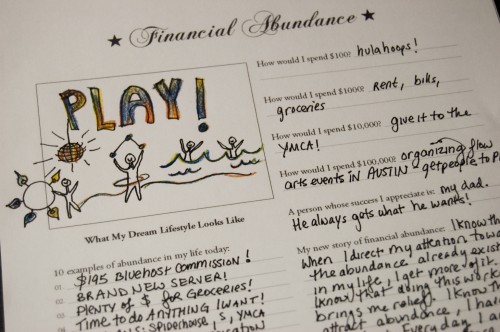 ★ Financial Abundance ★
PLAY!
What My Dream Lifestyle Looks Like
10 examples of abundance in my life today:
01 $195 Bluehost Commission!
02 BRAND NEW SERVER!
03 PLENTY OF $ for GROCERIES!
04 TIME to do ANYTHING I WANT!
Spiderhouse, YMCA
How would I spend $100? hulahoops!
How would I spend $1000? Rent, bills,
groceries
How would I spend $10,000? give it to the
YMCA!
How would I spend $100,000? organizing flow
arts events IN AUSTIN - get people to
A person whose success I appreciate is: my dad.
He always gets what he wants!
My new story of financial abundance: I know
When I direct my attention
the abundance already
in my life, I get more of it.
know that doing this work
brings me relief. I know
attract abundance, I